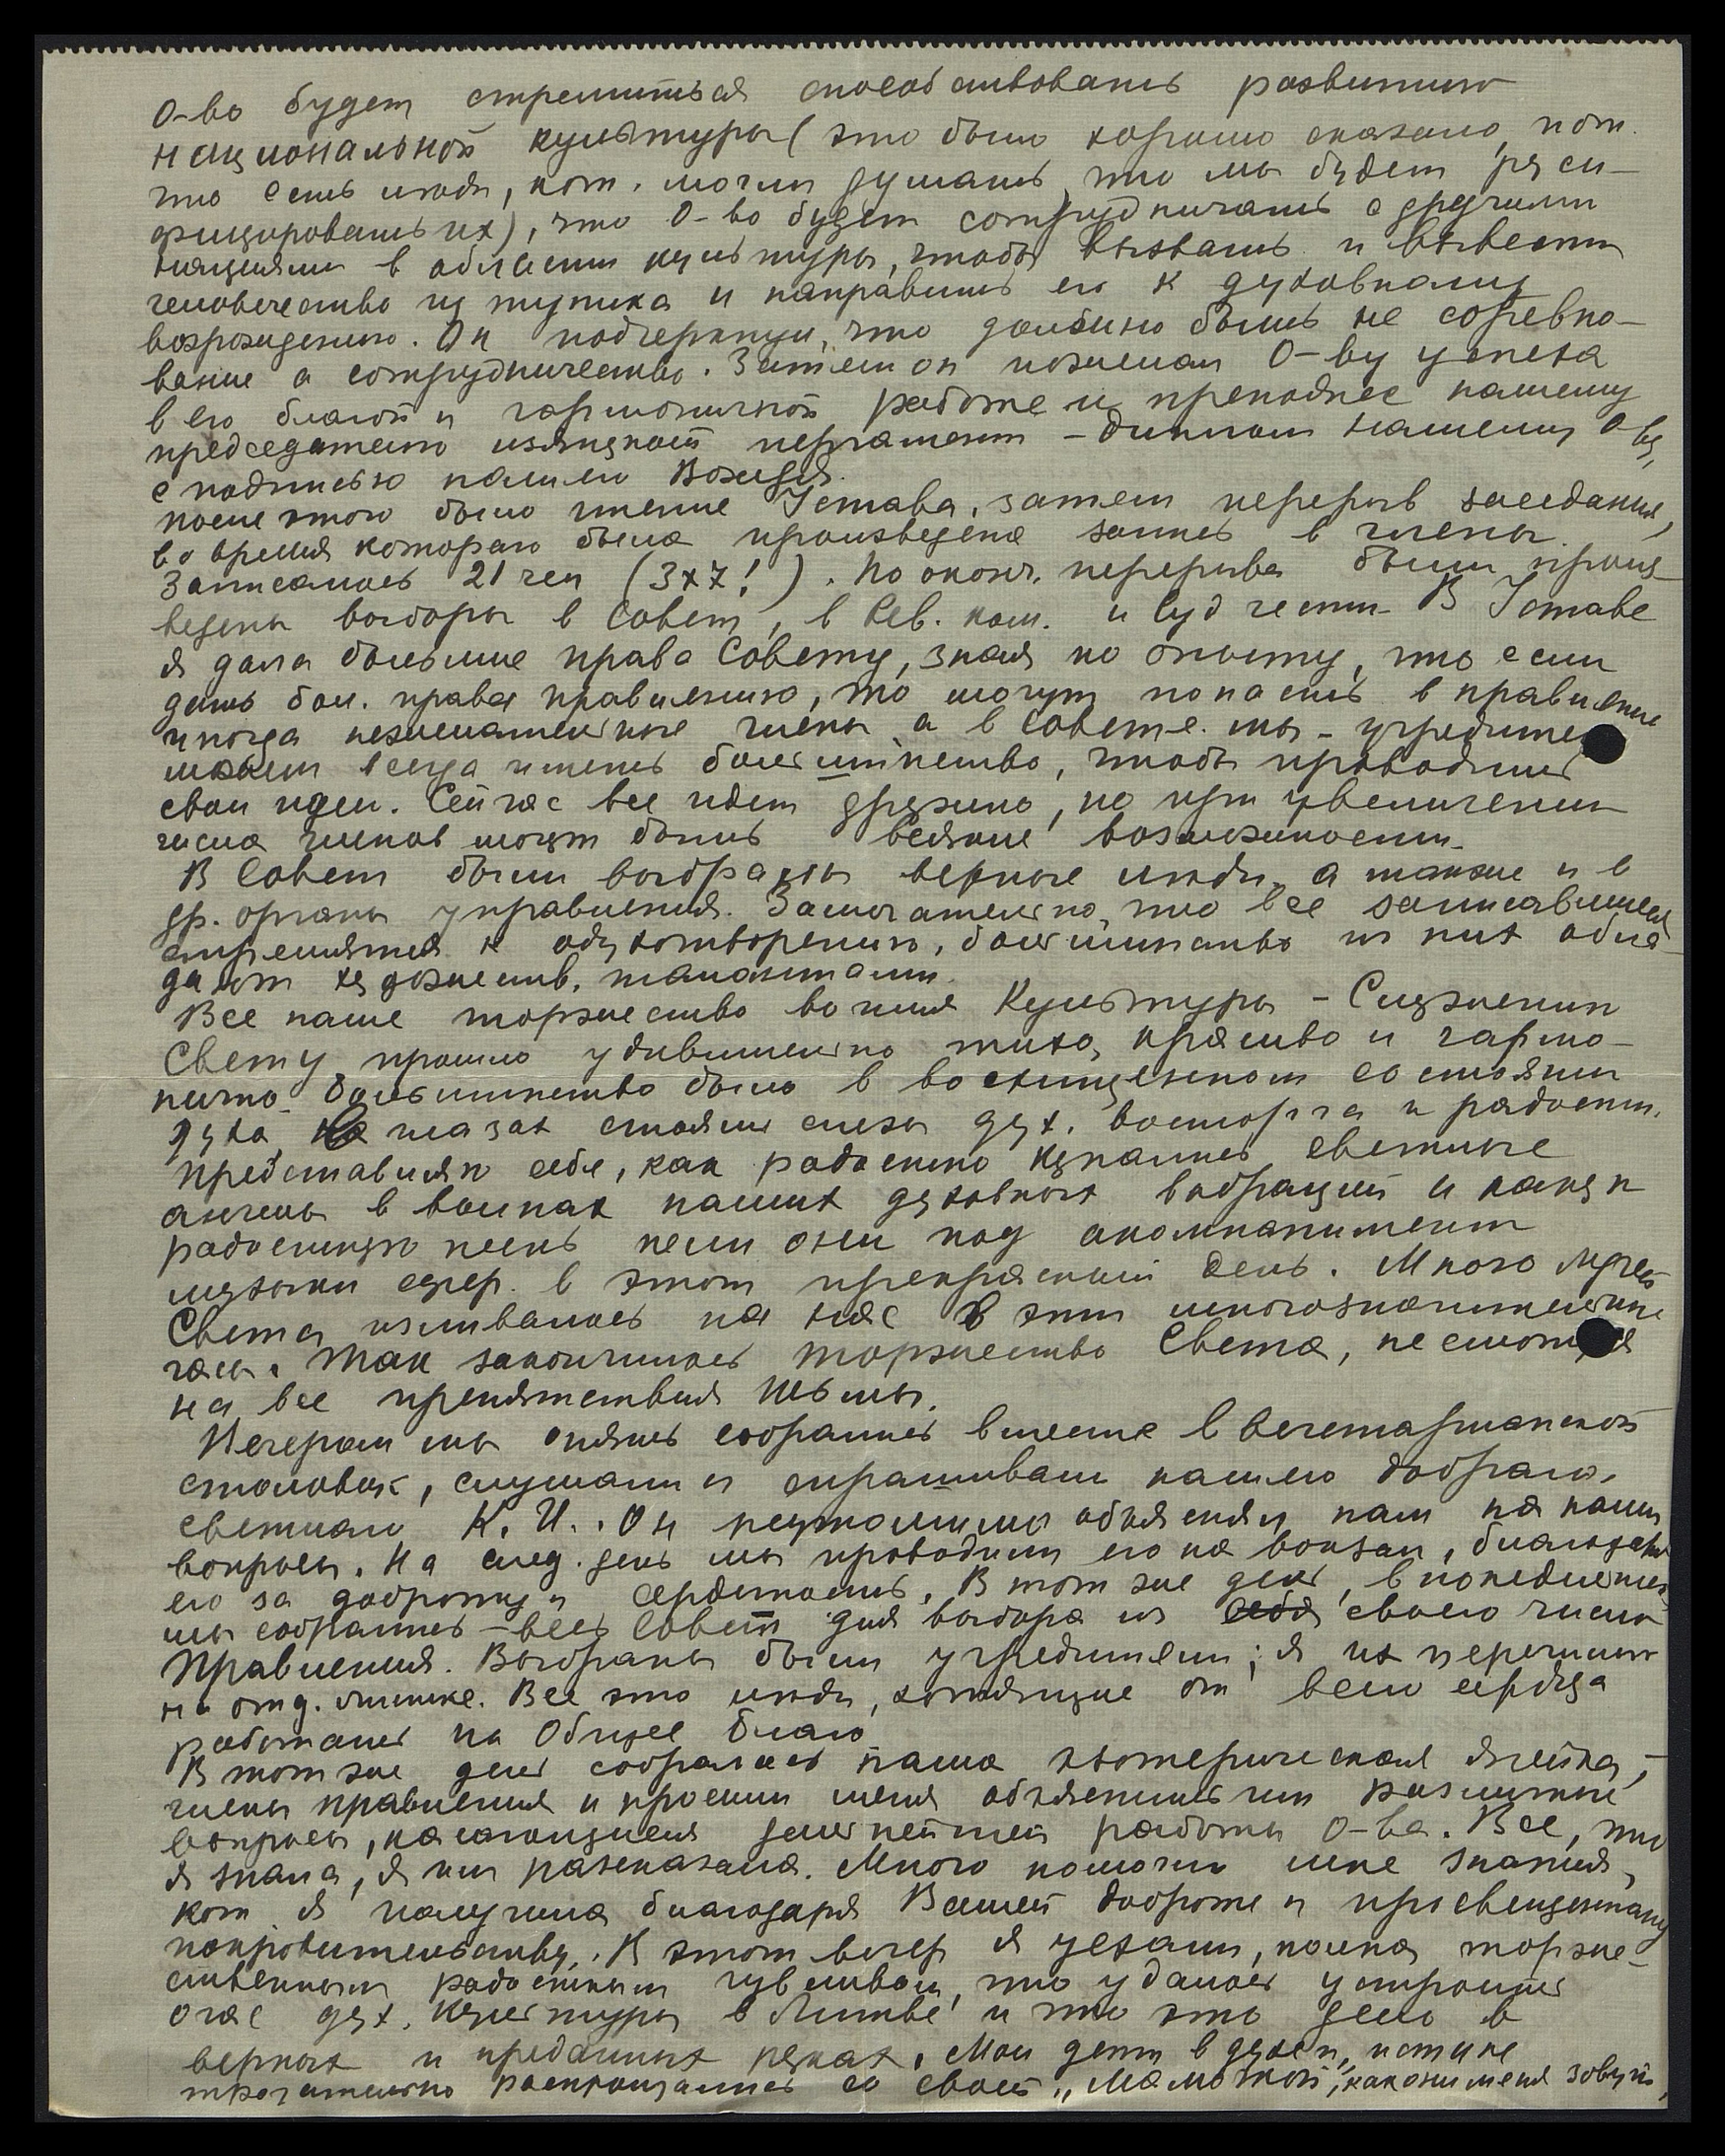 О-во будет стремиться способствовать развитию
национальной культуры (это было хорошо сказано, пот.
что есть люди, кот. могли думать, что мы будем руси-
фицировать их), что О-во будет сотрудничать с другими
нациями в области культуры, чтобы вызвать и вывести
человечество из тупика и направить его к духовному
возрождению. Он подчеркнул, что должно быть не соревно-
вание а сотрудничество. Затем он пожелал О-ву успеха
в его благой и гармоничной работе и преподнес нашему
председателю изящный пергамент - диплом нашему О-ву,
с подписью нашего Вождя.
После этого было чтение Устава, затем перерыв заседания,
во время которого была произведена запись в члены.
Записалось 21 чел (3x7!). По оконч. перерыва были произ-
ведены выборы в Совет, в Рев. ком. и Суд чести. В Уставе
я дала большие права Совету, зная по опыту, что если
дать бол. права правлению, то могут попасть в правление
иногда нежелательные члены, а в Совете мы - учредители
можем всегда иметь большинство, чтобы проводить
свои идеи. Сейчас все идет дружно, но при увеличении
числа членов могут быть всякие возможности.
В Совет были выбраны верные люди, а также и в
др. органы управления. Замечательно, что все записавшиеся
стремятся к одухотворению, большинство из них обла-
дают художеств. талантами.
Все наше торжество во имя Культуры - Служения
Свету прошло удивительно тихо, красиво и гармо-
нично. Большинство было в восхищенном состоянии
духа, на глазах стояли слезы дух. восторга и радости.
Представляю себе, как радостно купались светлые
ангелы в волнах наших духовных вибраций и какую
радостную песнь пели они под акомпанимент
музыки сфер. в этот прекрасный день. Много лучей
Света изливалось на нас в эти многозначительные
часы. Так закончилось торжество Света, не смотря
на все препятствия тьмы.
Вечером мы опять собрались вместе в вегетарианской
столовой, слушали и спрашивали нашего доброго,
светлого К. И.. Он неутомимо объяснял нам на наши
вопросы. На след. день мы проводили его на вокзал, благодаря
его за доброту и сердечность. В тот же день, в понедельник
мы собрались - весь Совет для выбора из себя своего числа
Правления. Выбраны были учредители; я их перечислю
на отд. листике. Все это люди, хотящие от всего сердца
работать на Общее благо
В тот же день собралась наша эзотерическая ячейка, -
члены правления и просили меня объяснить им различные
вопросы, касающиеся дальнейшей работы О-ва. Все, что
я знала, я им рассказала. Много помогли мне знания,
кот. я получила благодаря Вашей доброте и просвещенному
покровительству. В этот вечер я уехала, полна торже-
ственным радостным чувством, что удалось устроить
очаг дух. культуры в Литве и что это дело в
верных и преданных руках. Мои дети в духе, истине
трогательно распрощались со своей „Мамочкой", как они меня зовут,